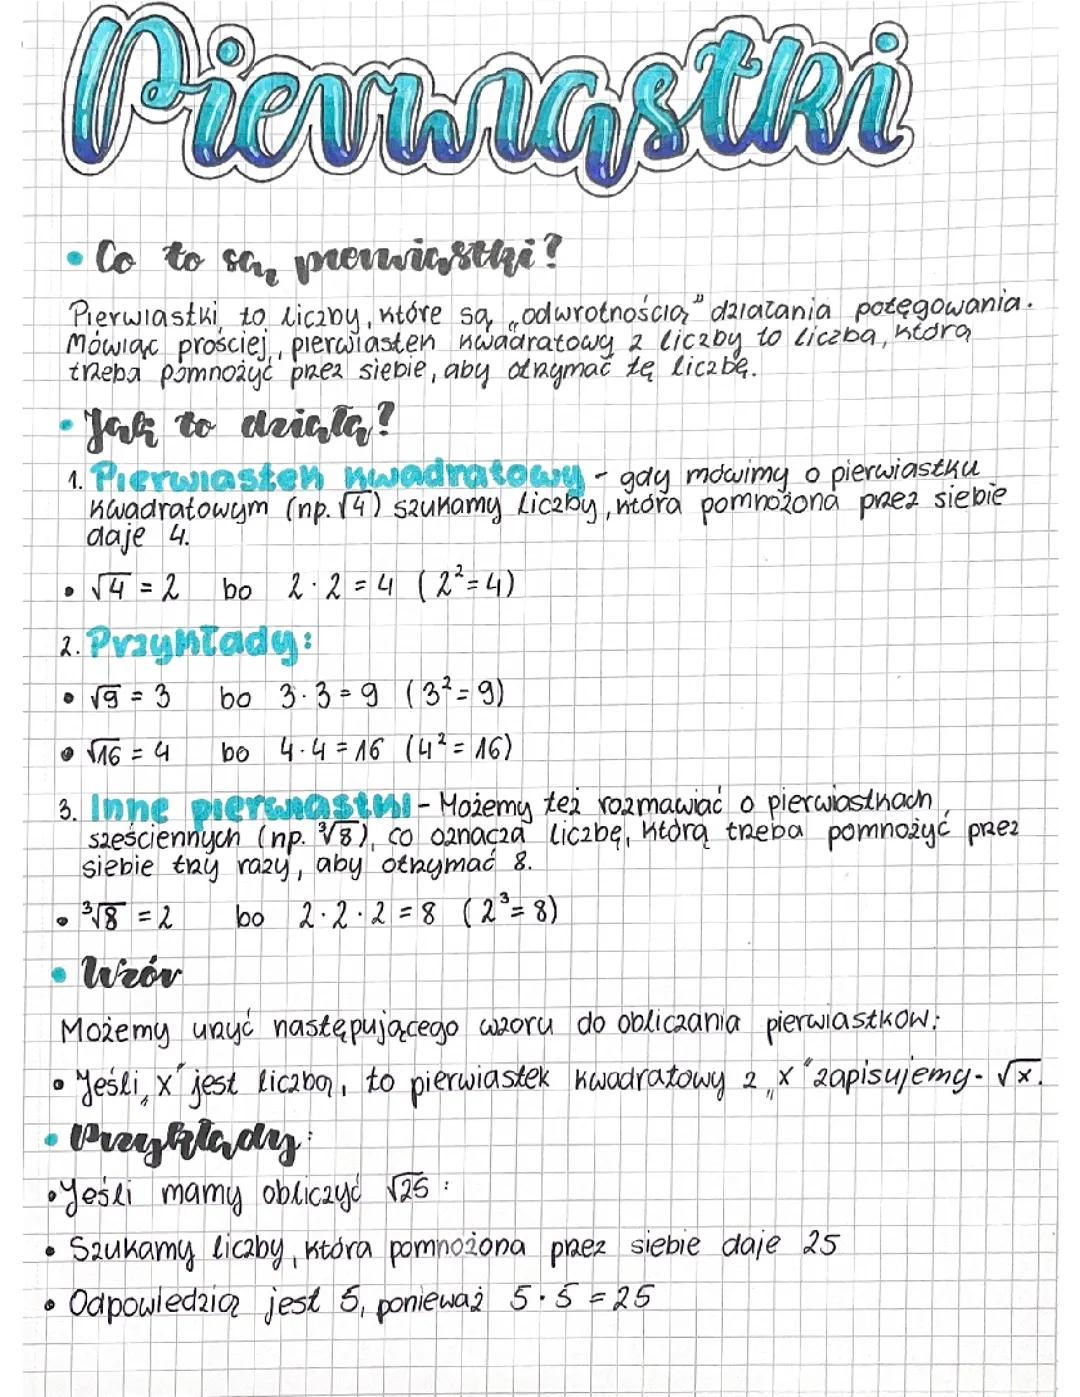 Pierwiastki
• Co to są pierwiastki?
Pierwiastki to liczby, które są „odwrotnością" działania potęgowania.
Mówiąc prościej, pierwiastek kwadratowy z liczby to liczba, którą
trzeba pomnożyć przez siebie, aby otrzymać tę liczbę.
• Jak to działa?
1. Pierwiastek kwadratowy - gdy mówimy o pierwiastku
kwadratowym (np. √4) szukamy liczby, która pomnożona przez siebie
daje 4.
• √4 = 2 bo 2 · 2 = 4 (2²=4)
2. Przykłady:
• √9 = 3 bo 3 · 3 = 9 (3²=9)
• √16 = 4 bo 4 · 4 = 16 (4²=16)
3. Inne pierwiastki - Możemy też rozmawiać o pierwiastkach
sześciennych (np. ³√8), co oznacza liczbę, którą trzeba pomnożyć przez
siebie trzy razy, aby otrzymać 8.
• ³√8 = 2 bo 2 · 2 · 2 = 8 (2³=8)
• Wzór
Możemy użyć następującego wzoru do obliczania pierwiastków:
• Jeśli „x" jest liczbą, to pierwiastek kwadratowy z „x" zapisujemy - √x.
• Przykłady:
• Jeśli mamy obliczyć √25 :
• Szukamy liczby, która pomnożona przez siebie daje 25
• Odpowiedzią jest 5, ponieważ 5 · 5 = 25